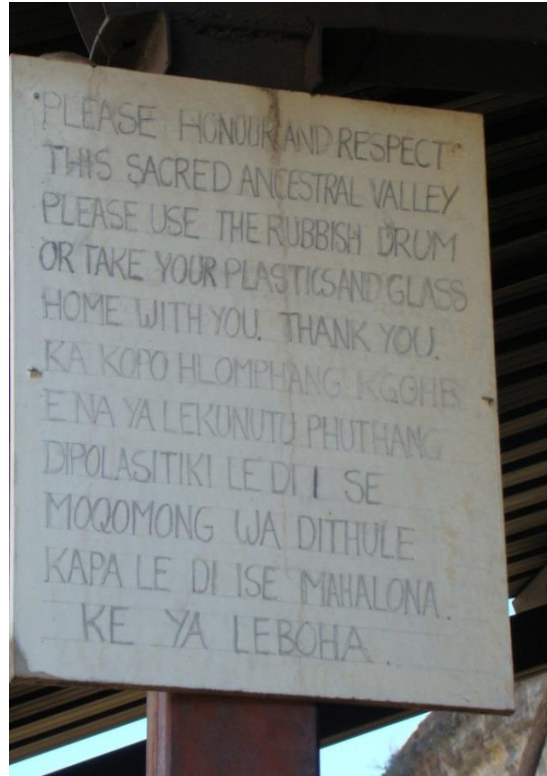 PLEASE HONOUR AND RESPECT
THIS SACRED ANCESTRAL VALLEY
PLEASE USE THE RUBBISH DRUM
OR TAKE YOUR PLASTICS AND GLASS
HOME WITH YOU. THANK YOU.
KA KOPO HLOMPHANG KGOHE
E NA YA LEKUNUTU PHUTHANG
DIPOLASITIKI LE DI I SE
MOQOMONG WA DITHULE
KAPA LE DI ISE MAHALONA.
KE YA LEBOHA.